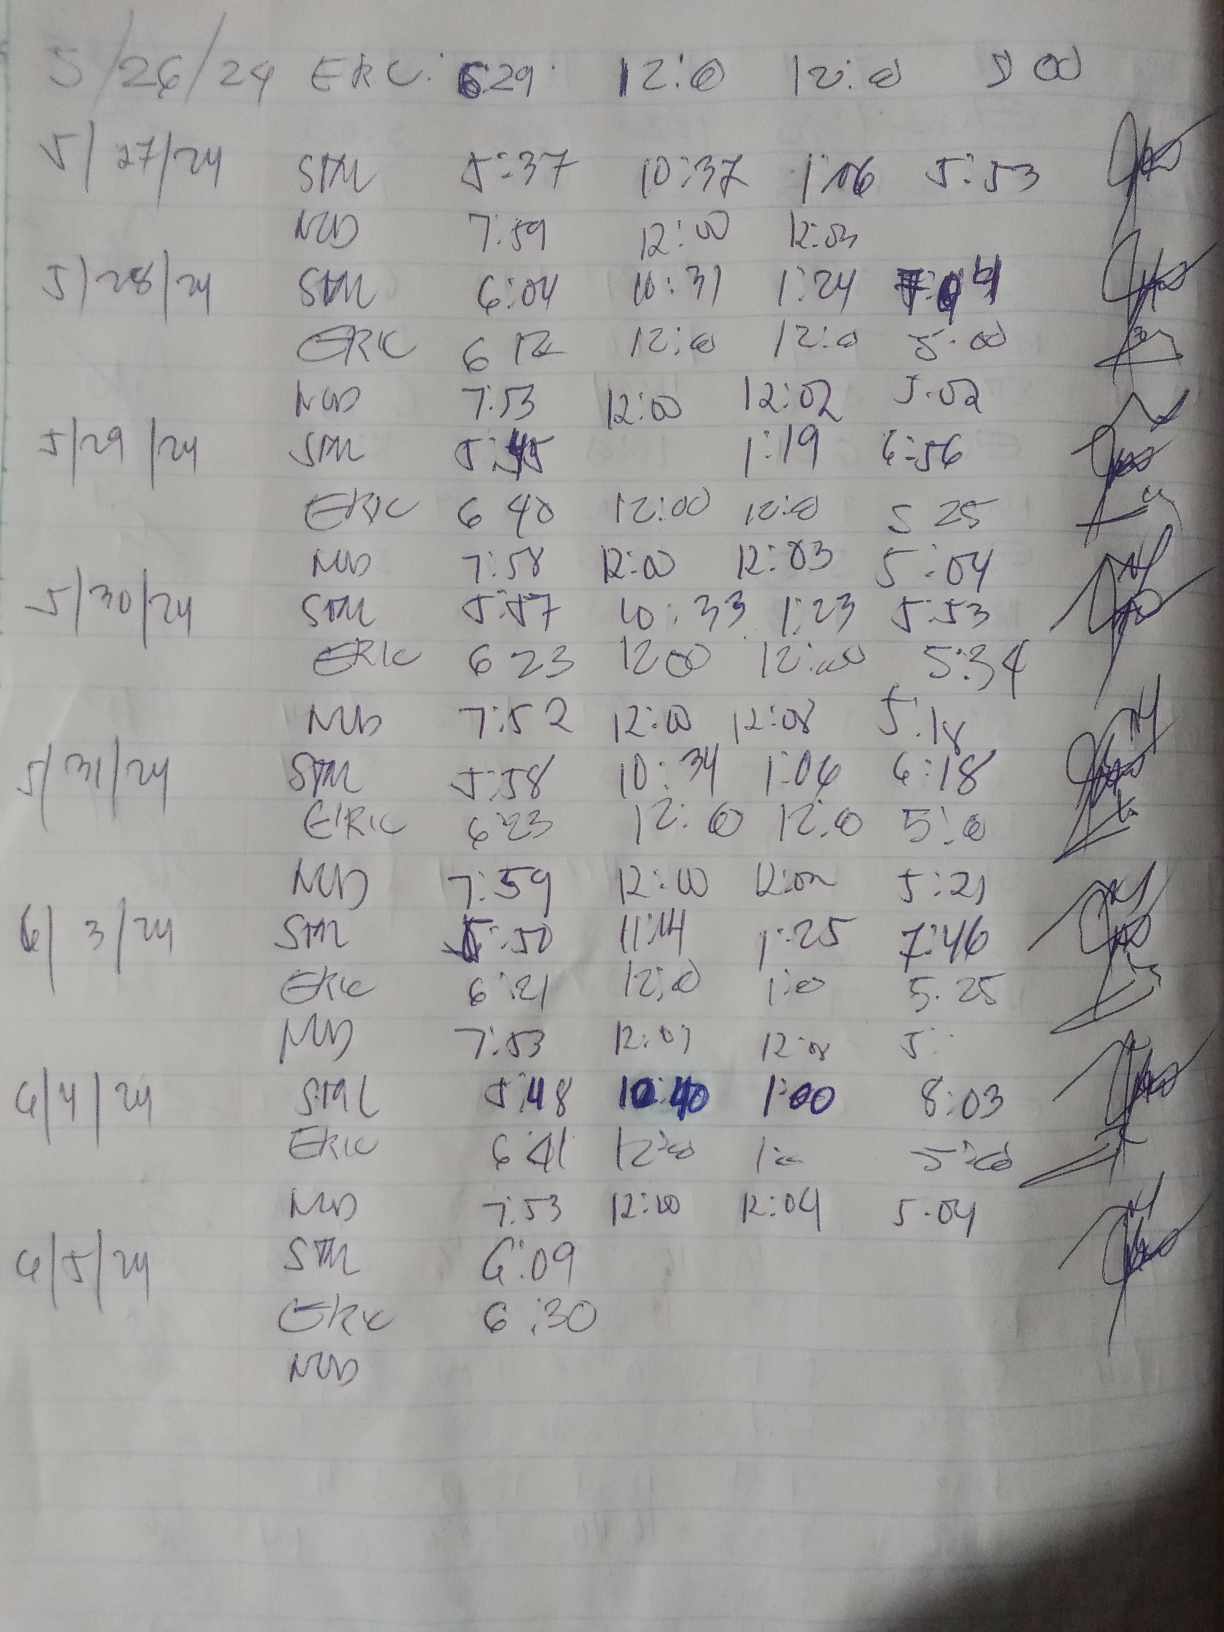 5/26/24 ERC. 6:29 12:0 12:0 5 00
5/27/24 STM 5:37 10:37 1:06 5:53
NUD 7:59 12:00 12:03
5/28/24 STM 6:04 10:31 1:24
ERIC 6 12 12:0 12:0 5.00
NUD 7:53 12:00 12:02 5.02
5/29/24 STM 5:45 1:19 6:56
ERIC 6 40 12:00 12:0 5 25
NUD 7:58 12:00 12:03 5:04
5/30/24 STM 5:57 10:33 1:23 5:53
ERIC 6 23 1200 12:00 5:34
NUD 7:52 12:00 12:08 5:18
5/31/24 STM 5:58 10:34 1:06 6:18
ERIC 6:23 12:0 12:0 5:0
NUD 7:59 12:00 12:02 5:21
6/3/24 STM 5:50 11:14 1:25 7:46
ERIC 6:21 12:0 1:0 5.25
NUD 7:53 12:07 12:08 5:
6/4/24 STM 5:48 10:40 1:00 8:03
ERIC 6:41 12:0 5:00
NUD 7:53 12:00 12:04 5.04
6/5/24 STM 6:09
ERIC 6:30
NUD